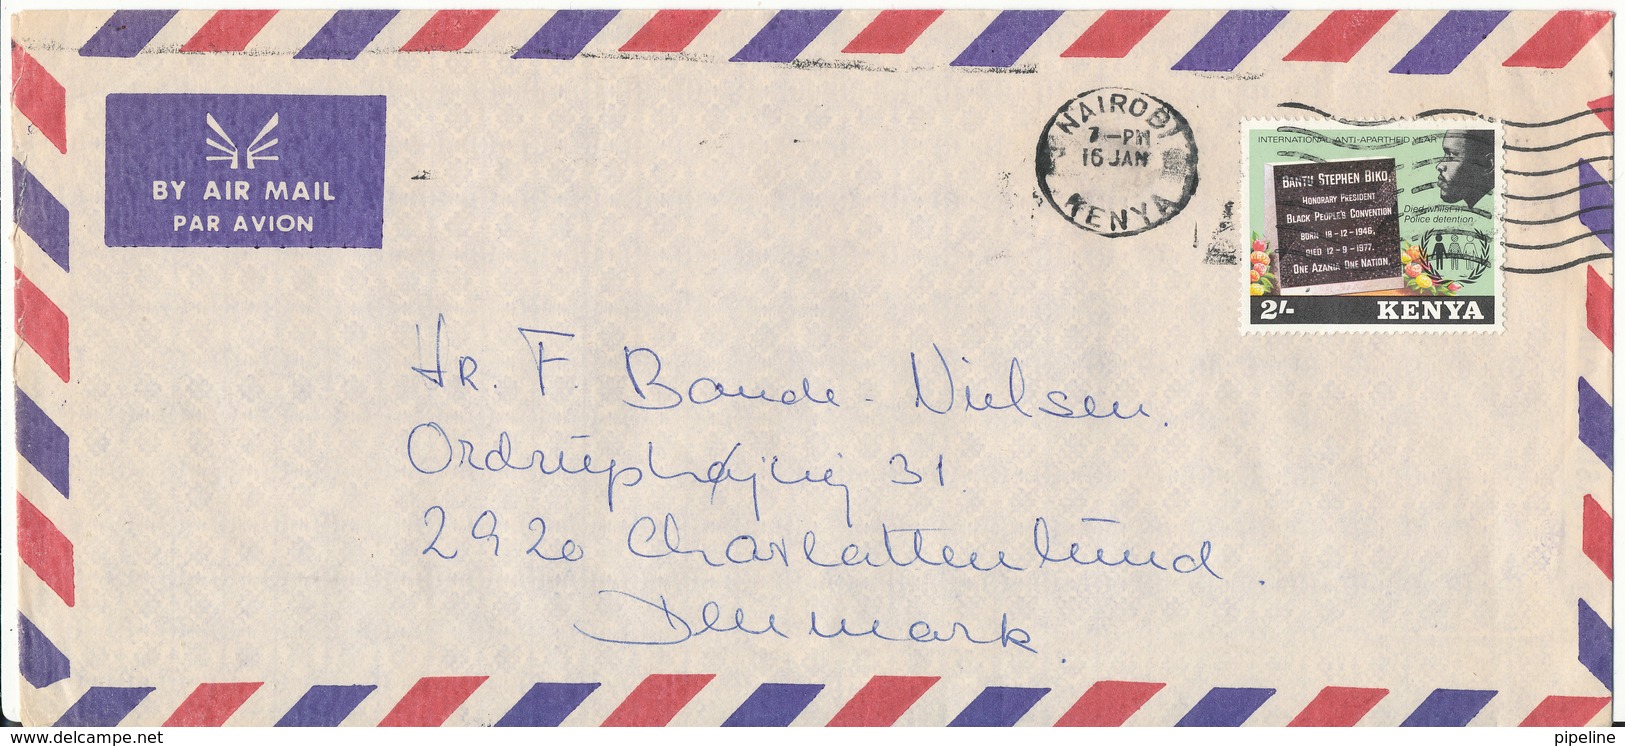 BY AIR MAIL
PAR AVION
NAIROBI
7-PM
16 JAN
KENYA
INTERNATIONAL ANTI-APARTHEID YEAR
BANTU STEPHEN BIKO,
HONORARY PRESIDENT
BLACK PEOPLE'S CONVENTION
BORN 18-12-1946,
DIED 12-9-1977.
ONE AZANIA ONE NATION.
Died whilst in
Police detention
2/-
KENYA
Hr. F. Baude-Nielsen.
Ordruphøjvej 31
2920 Charlottenlund.
Denmark.
www.delcampe.net
pipeline